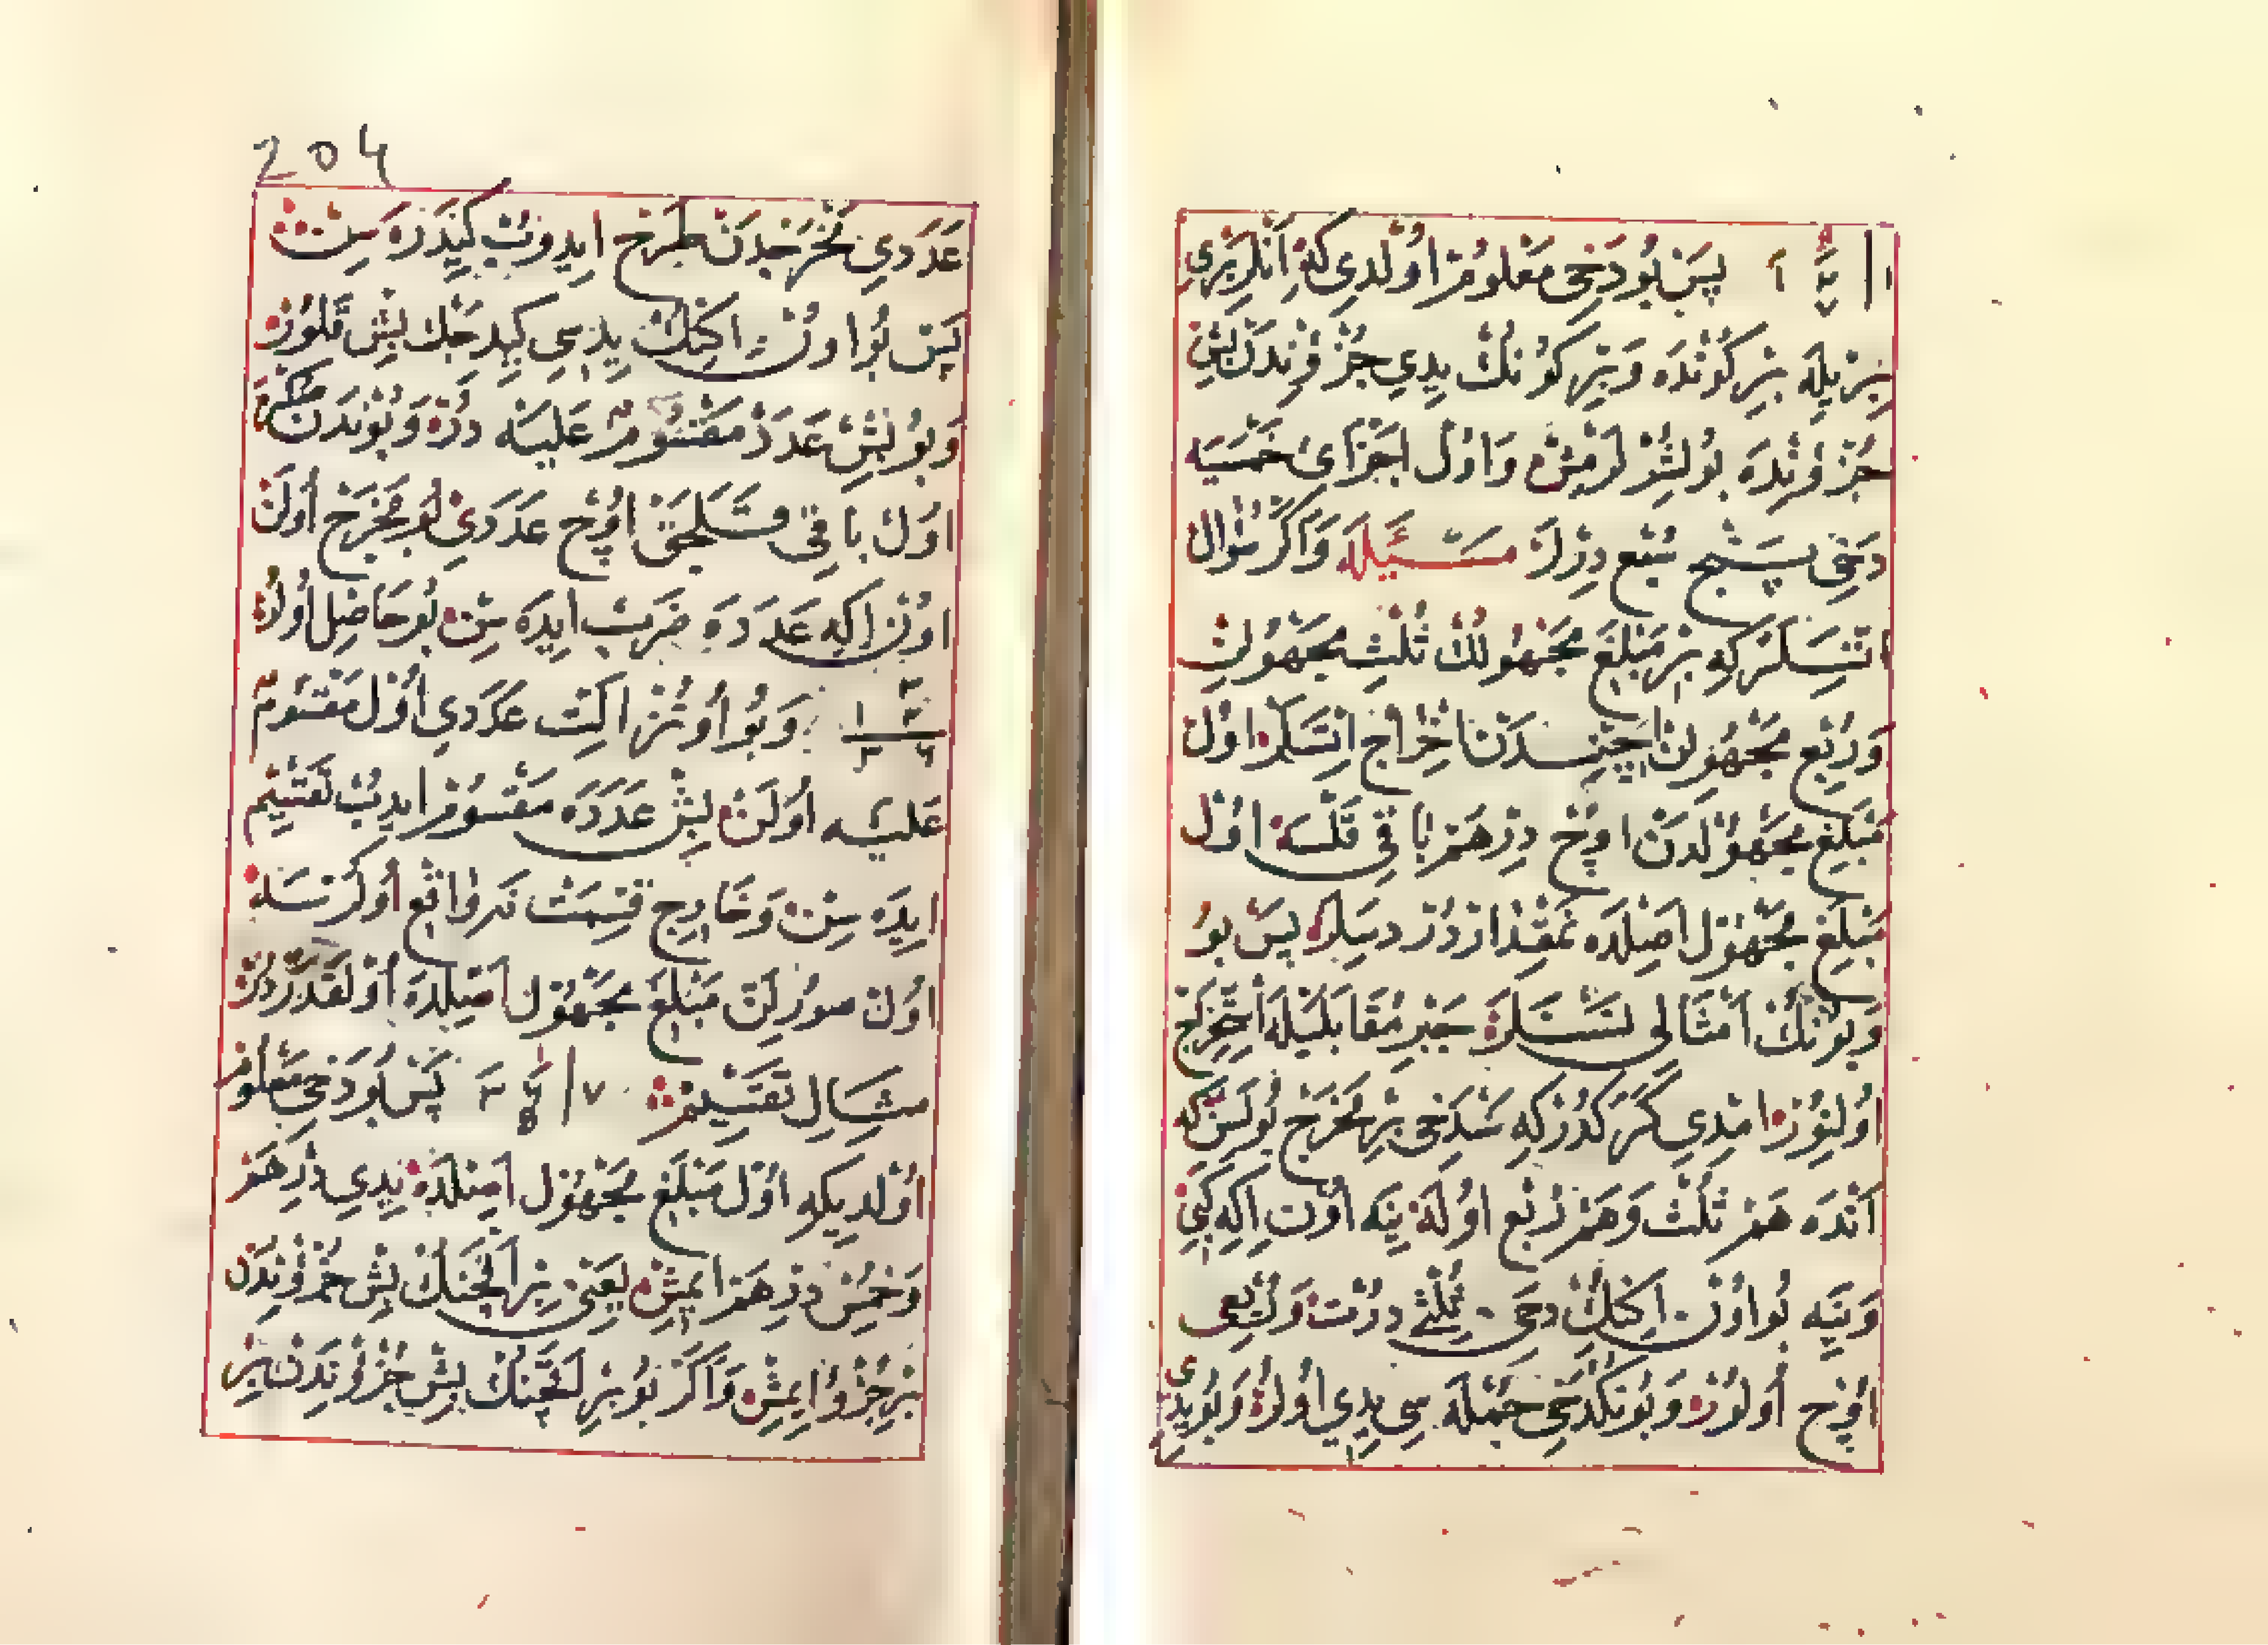 پس بو دخی معلوم اولدی که انلر بری
بریله بر کونده و بر کونك یدی جزؤندن بش
جزؤنده بولشورلرمش و اول اجزای خمسیه
دخی پنج سبع درلر مسئله و اکر سؤال
اتسلر که بر مبلغ مجهولك ثلث مجهولن
و ربع مجهولن ایچندن اخراج اتسلر اول
مبلغ مجهولدن اوچ درهم باقی قلسه اول
مبلغ مجهول اصلده نمقدار در دیسلر پس بو
و بونك امثالی نسنلر جبر مقابلیله استخراج
اولنور امدی کرکدر که شندخی بر مخرج بولسن که
انده هم ثلث و هم ربع اوله ینه اون اکی کبی
و ینه بو اون اکنك دخی ثلثی درت و ربعی
اوچ اولور و بونکدخی جمله سی یدی اولور و بو یدی
204
عددی مخرجدن طرح ایدوب کیدره سن
پس بو اون اکنك یدیسی کیدجك بش قلور
و بو بش عدد مقسوم علیه در و بوندن صکره
اول باقی قلجق اوچ عددی بو مخرج اولن
اون اکی عدده ضرب ایده سن بو حاصل اولور
۳ ۱۲ ۳۶ و بو اوتز التی عددی اول مقسوم
علیه اولن بش عدده مقسوم ایدب تقسیم
ایده سن و خارج قسمت نه واقع اولورسه
اول سورلن مبلغ مجهول اصلده اولقدر در
مثال تقسیم ۷ پس بو دخی معلوم
اولدیکه اول مبلغ مجهول اصلده یدی درهم
و خمس درهم ایمش یعنی بر اقچنك بش جزؤندن
بر جزؤ ایمش و اکر بو بر اقچنك بش جزؤندن بر